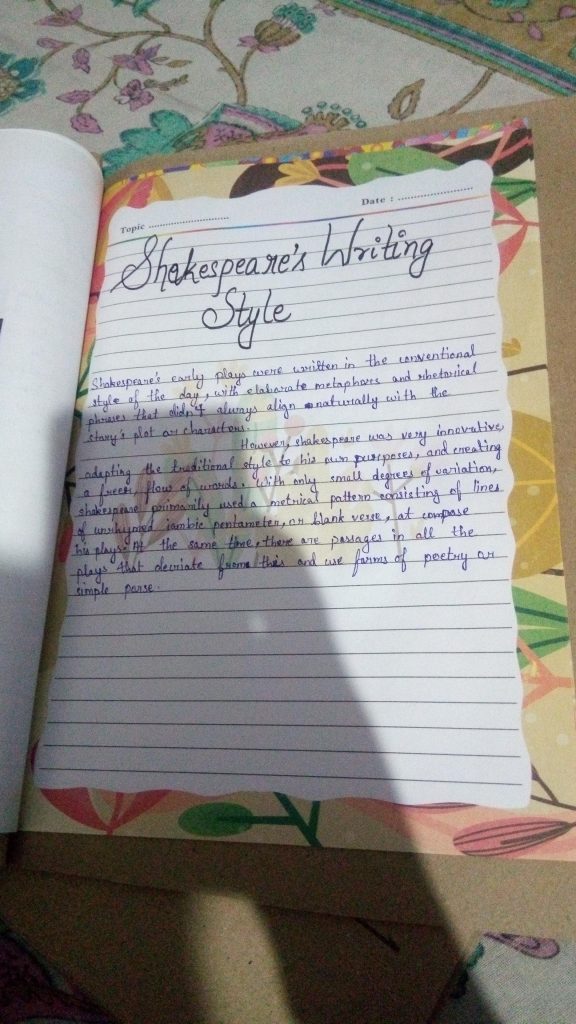 Topic ..............................
Date : ..............................
Shakespeare's Writing
Style
Shakespeare's early plays were written in the conventional
style of the day, with elaborate metaphores and rhetorical
phrases that didn't always align naturally with the
story's plot or characters.
However, shakespeare was very innovative,
adapting the traditional style to his own purposes, and creating
a freer flow of words. With only small degrees of variation,
shakespeare primarily used a metrical pattern consisting of lines
of unrhymed iambic pentameter, or blank verse, at compose
his plays. At the same time, there are passages in all the
plays that decriate from this and use forms of poetry or
simple parse.